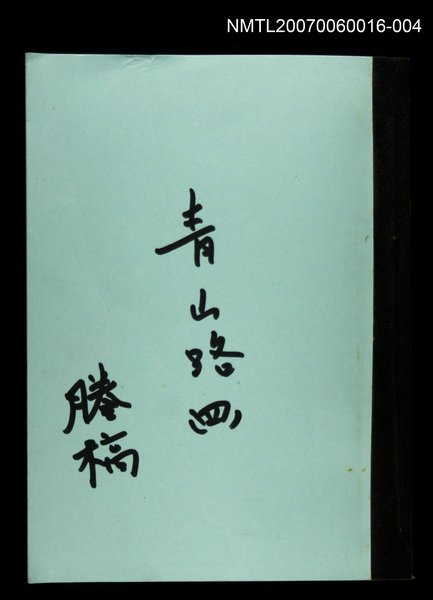 NMTL20070060016-004
青山路(四)
謄稿